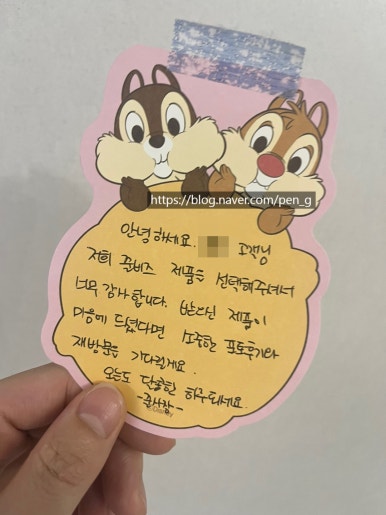 https://blog.naver.com/pen_g
안녕하세요. 고객님
저희 준비즈 제품을 선택해주셔서
너무 감사합니다. 받으신 제품이
마음에 드셨다면 소중한 포토후기와
재방문을 기다릴게요.
오늘도 달콤한 하루되세요.
-준사장-
©Disney